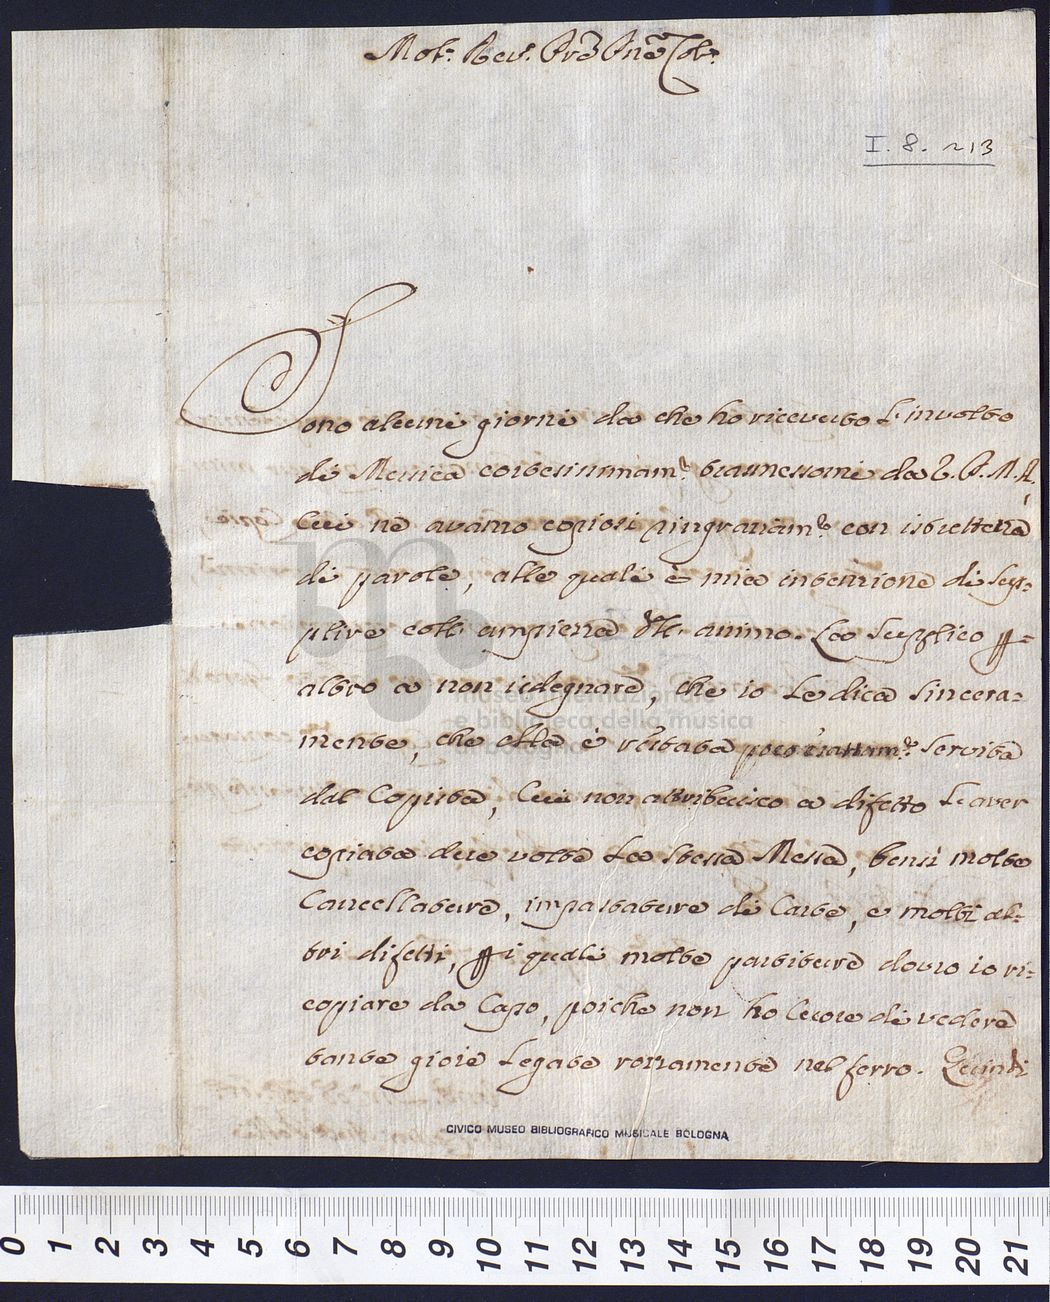 Molt. Rev. Prẽ Pnẽ Col.
I. 8. 213
Sono alcuni giorni da che ho ricevuto l'involto
di Musica cortesissimam.te trasmessomi da V. P. M. R.
Cui ne avanzo copiosi ringraziam.ti con istrettezza
di parole, alle quali è mia intenzione di sup-
plire coll'ampiezza dell'animo. La supplico per
altro a non isdegnare, che io le dica sincera-
mente, che ella è stata poco esattam.te servita
dal Copista, Cui non attribuisco a difetto l'aver
copiata due volte la stessa Messa, bensi molte
Cancellature, impastature di Carte, e molti al-
tri difetti, per i quali molte partiture dovrò io ri-
copiare da Capo, poiche non ho cuore di vedere
tante gioie legate rozzamente nel ferro. Quindi
museo internazionale
e biblioteca della musica
CIVICO MUSEO BIBLIOGRAFICO MUSICALE BOLOGNA
0 1 2 3 4 5 6 7 8 9 10 11 12 13 14 15 16 17 18 19 20 21